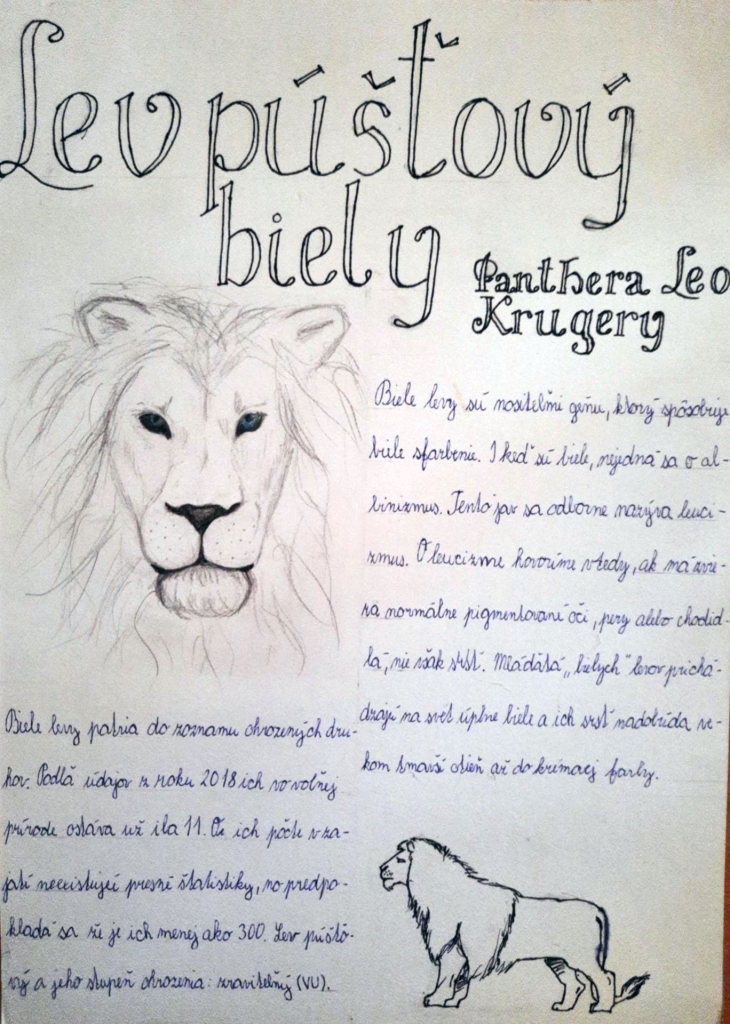 Lev púšťový
biely
Panthera Leo
Krugery
Biele levy sú nositeľmi génu, ktorý spôsobuje
biele sfarbenie. I keď sú biele, nejedná sa o al-
binizmus. Tento jav sa odborne nazýva leuci-
zmus. O leucizme hovoríme vtedy, ak má zvie-
ra normálne pigmentované oči, pery alebo chodid-
lá, nie však srsť. Mláďatá „bielych" levov prichá-
dzajú na svet úplne biele a ich srsť nadobúda ve-
kom tmavší odtieň až do krémovej farby.
Biele levy patria do zoznamu ohrozených dru-
hov. Podľa údajov z roku 2018 ich vo voľnej
prírode ostáva už iba 11. O ich počte v za-
jatí neexistujú presné štatistiky, no predpo-
kladá sa že je ich menej ako 300. Lev púšťo-
vý a jeho stupeň ohrozenia: zraniteľný (VU).